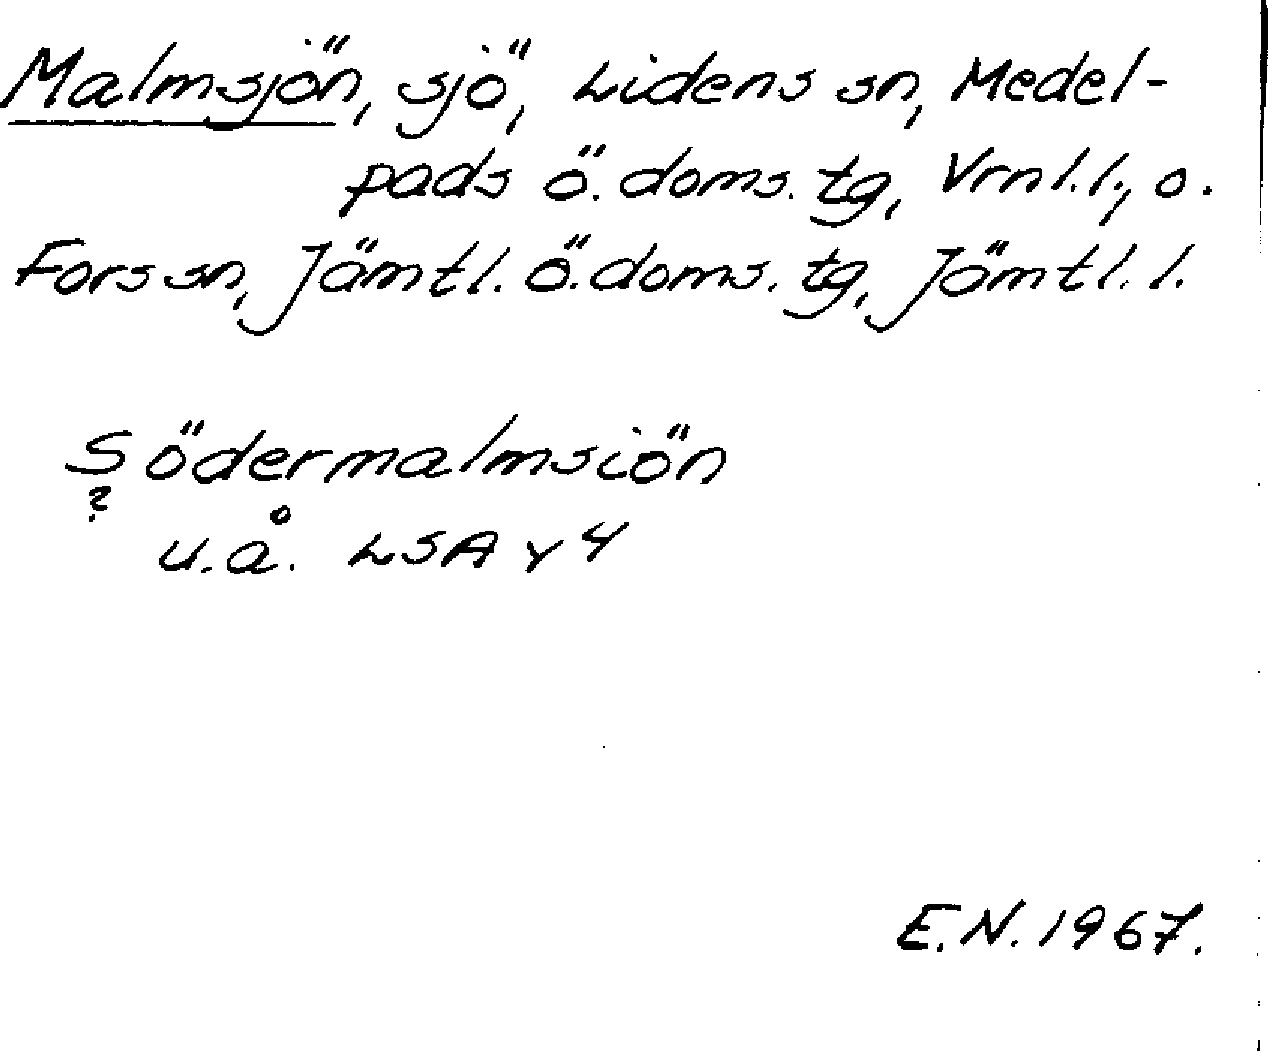 Malmsjön, sjö, Lidens sn, Medel-
pads ö. doms. tg, Vrnl. l., o.
Fors sn, Jämtl. Ö. doms. tg, Jämtl. l.
Södermalmsiön
?
u. å. LSA Y 4
E.N. 1967.